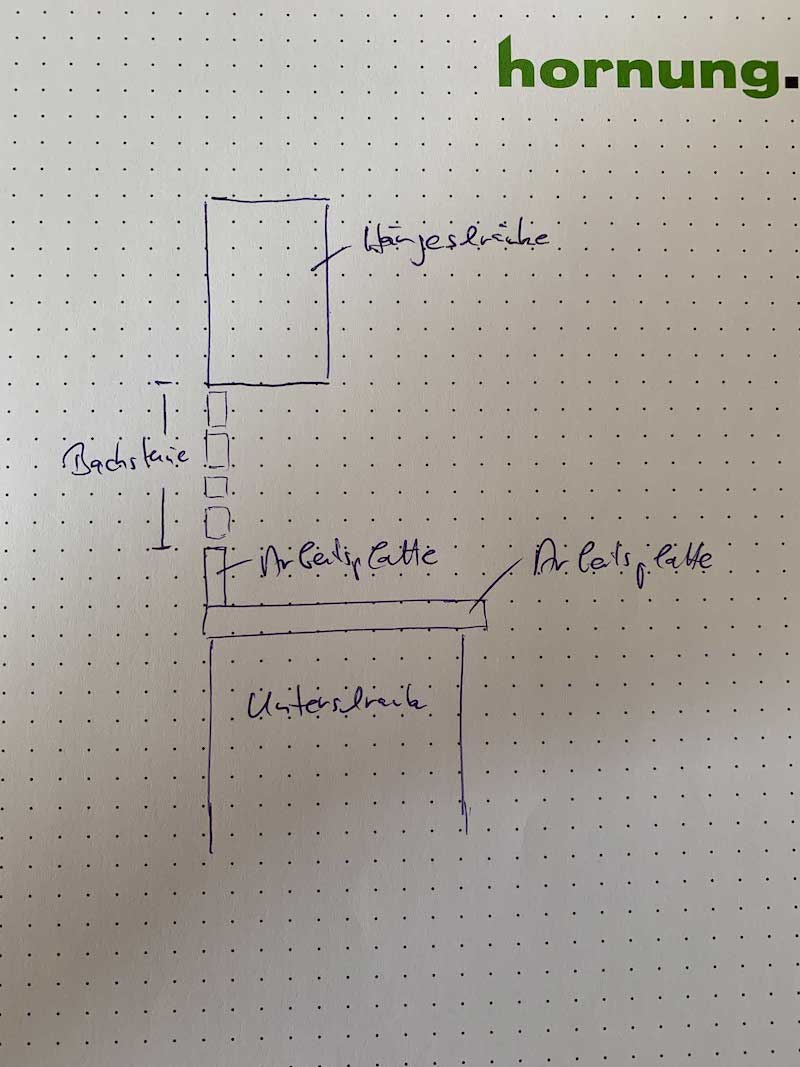 hornung.
Hängeschränke
Backsteine
Arbeitsplatte
Arbeitsplatte
Unterschrank